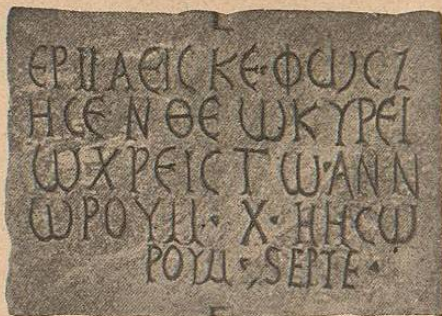 ΕΡΜΑΕΙϹΚΕ·ΦΩϹΖ
ΗϹΕΝ ΘΕΩΚΥΡΕΙ
Ω·ΧΡΕΙϹΤΩ·ΑΝΝ
ΩΡΟΥΜ· Χ· ΜΗϹΩ
ΡΟΥΜ·SEPTE·